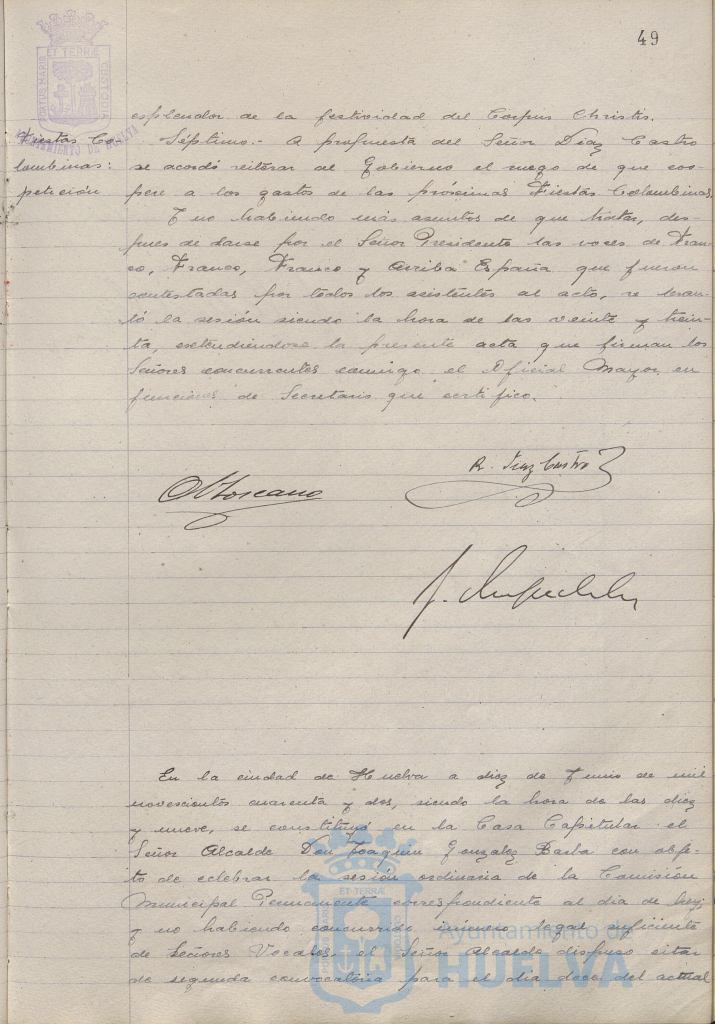 49
PORTUS MARIS ET TERRÆ CUSTODIA
AYUNTAMIENTO DE HUELVA
esplendor de la festividad del Corpus Christi.
Fiestas Co
lombinas:
petición
Séptimo.- A propuesta del Señor Díaz Castro
se acordó reiterar al Gobierno el ruego de que coo
pere a los gastos de las próximas Fiestas Colombinas.
Y no habiendo más asuntos de que tratar, des-
pues de darse por el Señor Presidente las voces de Fran-
co, Franco, Franco y Arriba España que fueron
contestadas por todos los asistentes al acto, se levan-
tó la sesión siendo la hora de las veinte y trein-
ta, extendiéndose la presente acta que firman los
Señores concurrentes conmigo el Oficial Mayor en
funciones de Secretario que certifico.
R. Diaz Castro
Toscano
En la ciudad de Huelva a diez de Junio de mil
novescientos cuarenta y dos, siendo la hora de las diez
y nueve, se constituyó en la Casa Capitular el
Señor Alcalde Don Joaquin Gonzalez Barba con obje-
to de celebrar la sesión ordinaria de la Comisión
Municipal Permanente correspondiente al dia de hoy;
y no habiendo concurrido número legal suficiente
de Señores Vocales, el Señor Alcalde dispuso citar
de segunda convocatoria para el dia doce del actual
ET TERRÆ
Ayuntamiento de
HUELVA